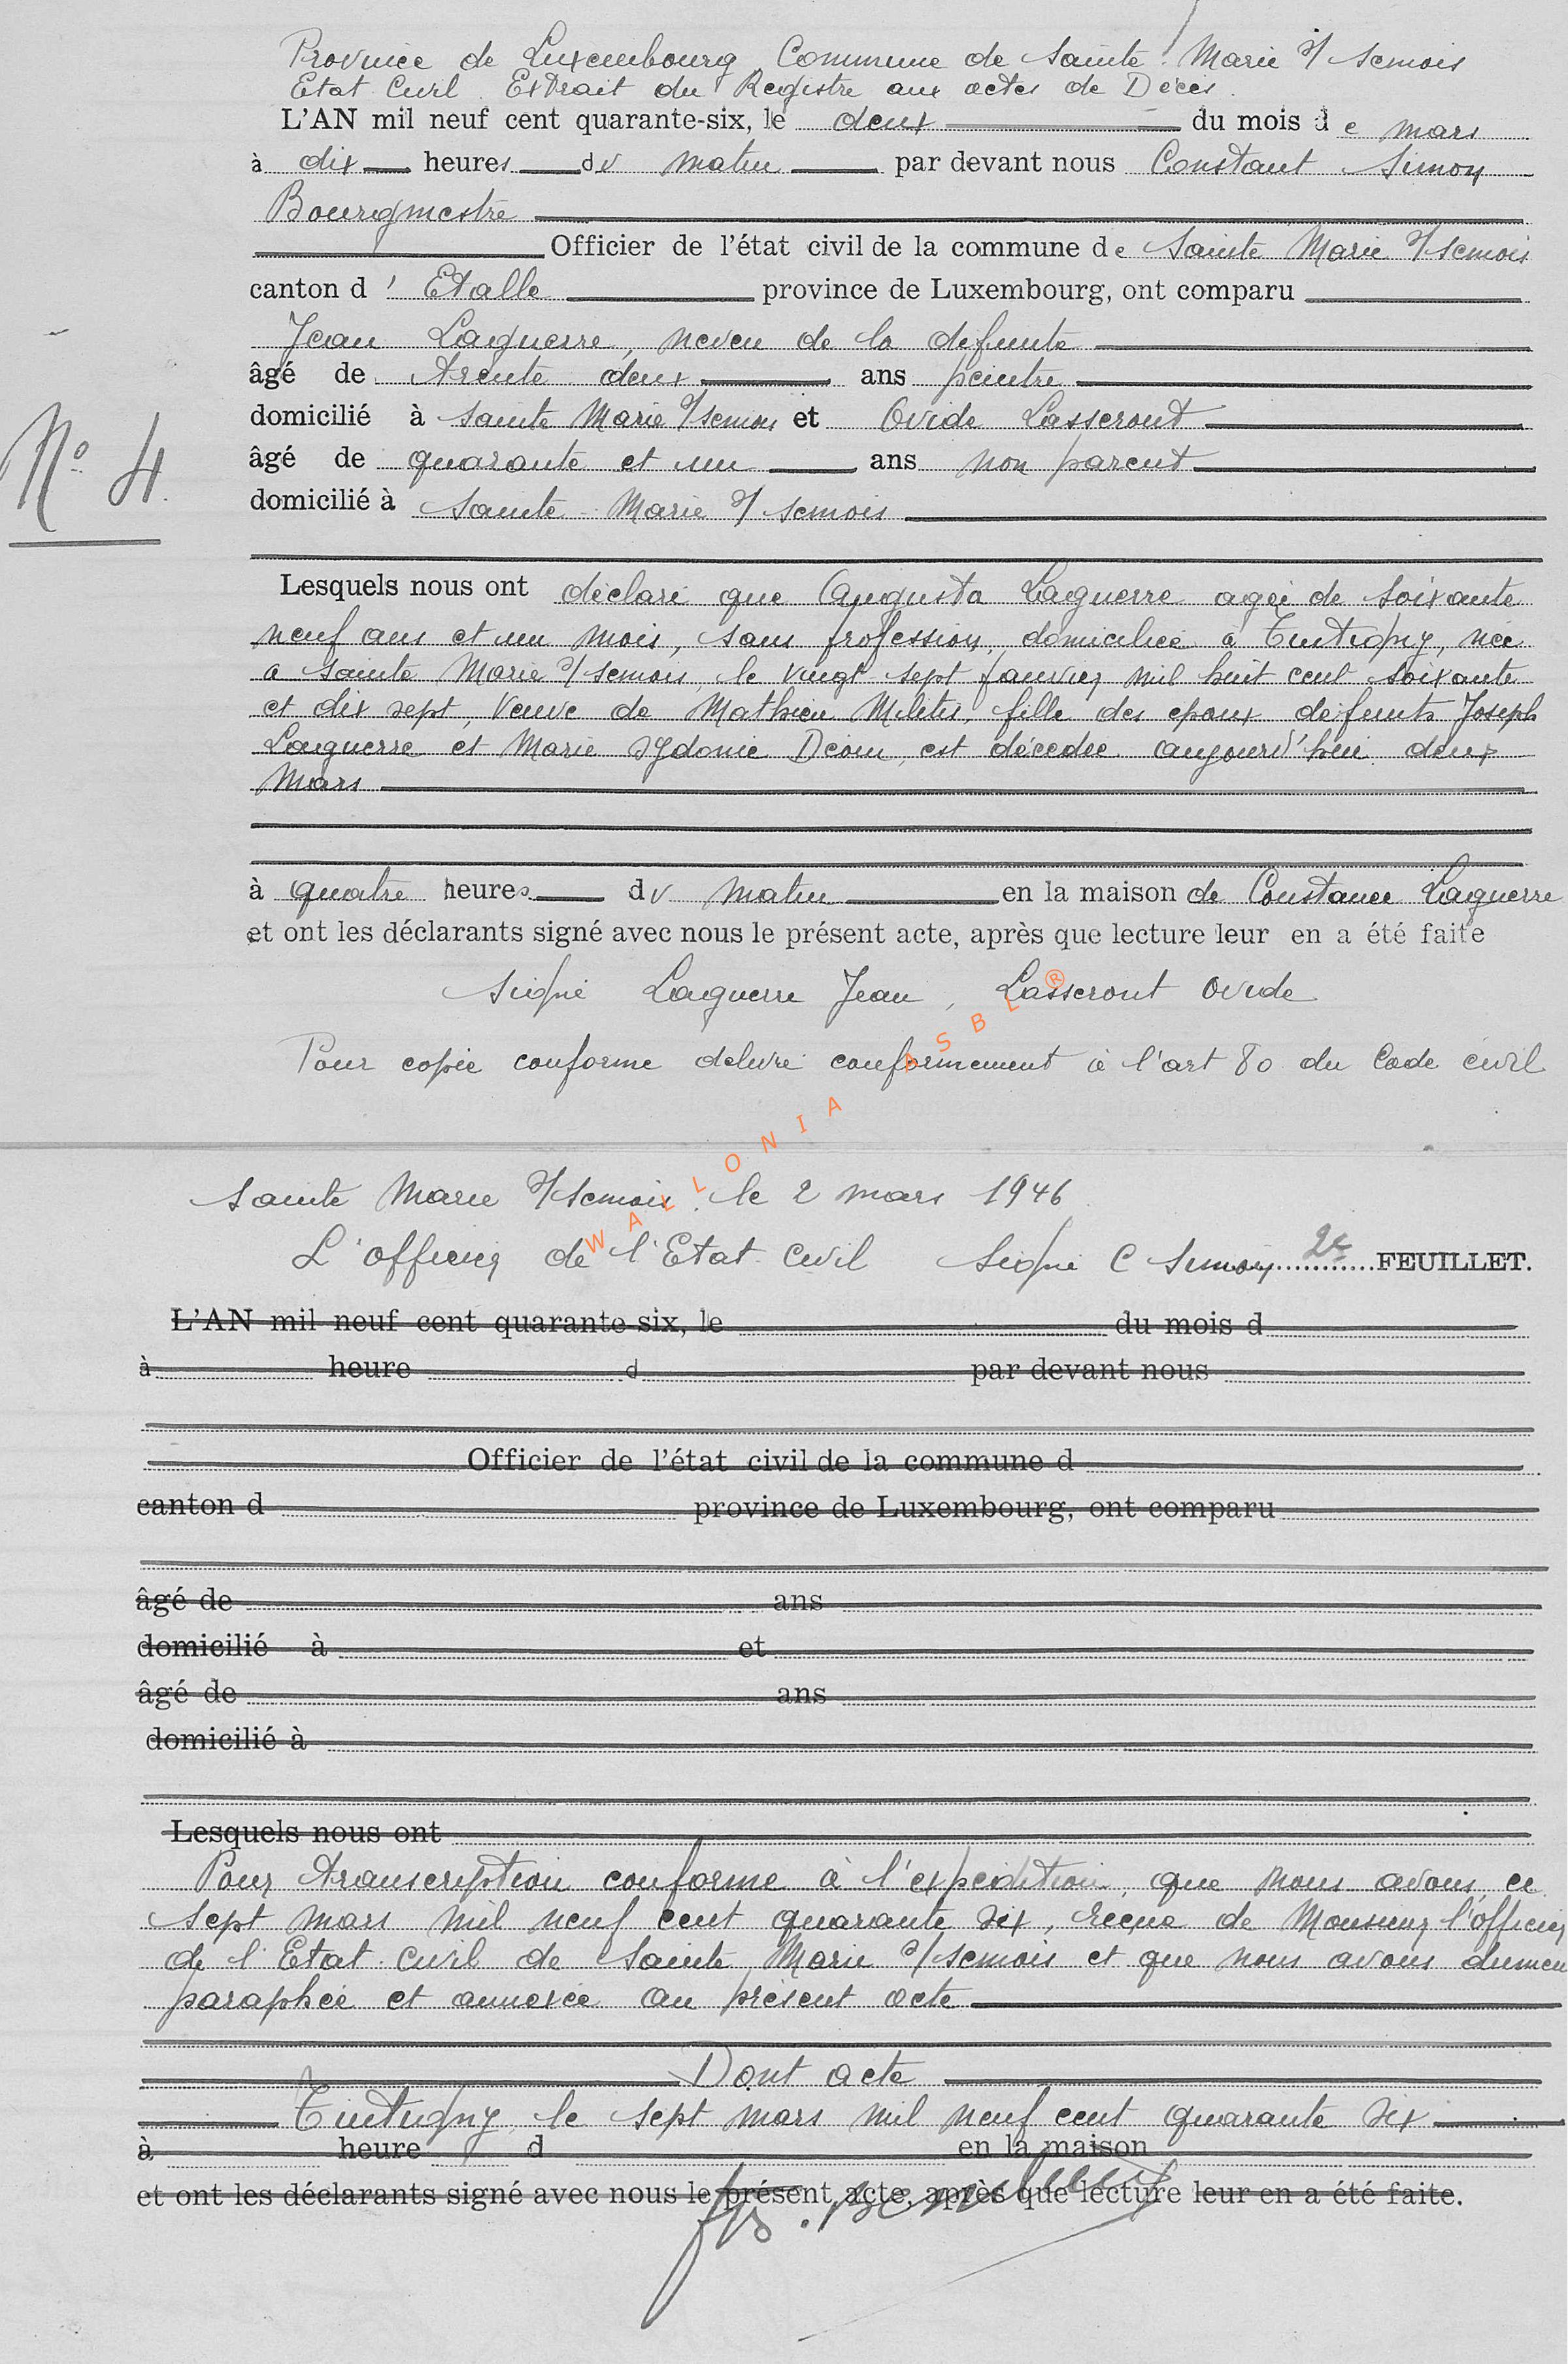 Province de Luxembourg Commune de Sainte Marie s/ Semois
Etat Civil Extrait du Registre aux actes de Décès.
L'AN mil neuf cent quarante-six, le deux du mois de mars
à dix heures du matin par devant nous Constant Simon
Bourgmestre
Officier de l'état civil de la commune de Sainte Marie s/Semois
canton d'Etalle province de Luxembourg, ont comparu
Jean Laguerre, neveu de la défunte
âgé de trente deux ans peintre
domicilié à Sainte Marie s/Semois et Ovide Lasseront
âgé de quarante et un ans non parent
N° 4.
domicilié à Sainte Marie s/ Semois
Lesquels nous ont déclaré que Augusta Laguerre agée de soixante
neuf ans et un mois, sans profession, domiciliée à Tintigny, née
a Sainte Marie s/Semois, le vingt sept janvier mil huit cent soixante
et dix sept, veuve de Mathieu, fille des epoux défunts Joseph
Laguerre et Marie Sydonie Deom, est décédée aujourd'hui deux
Mars
à quatre heures du matin en la maison de Constance Laguerre
et ont les déclarants signé avec nous le présent acte, après que lecture leur en a été faite
Signé Laguerre Jean, Lasseront Ovide
Pour copie conforme délivré conformement à l'art 80 du Code civil
WALLONIA ASBL ®
Sainte Marie s/Semois, le 2 mars 1946
L'officier de l'Etat Civil Signé C Simon 2e FEUILLET.
L'AN mil neuf cent quarante-six, le du mois d
à heure d par devant nous
Officier de l'état civil de la commune d
canton d province de Luxembourg, ont comparu
âgé de ans
domicilié à et
âgé de ans
domicilié à
Lesquels nous ont
Pour transcription conforme à l'expédition, que nous avons, ce
sept mars mil neuf cent quarante six, reçue de Monsieur l'officier
de l'Etat Civil de Sainte Marie s/Semois et que nous avons dumen
paraphée et annexée au présent acte
Dont acte
Tintigny, le sept mars mil neuf cent quarante six
à heure d en la maison
et ont les déclarants signé avec nous le présent acte, après que lecture leur en a été faite.